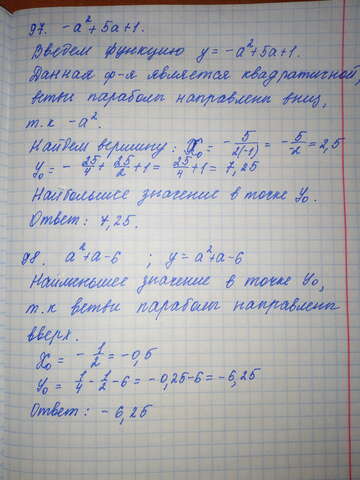 97. -a²+5a+1.
Введем функцию y=-a²+5a+1.
Данная ф-я является квадратичной,
ветви параболы направлены вниз,
т.к -a²
Найдем вершину: X₀ = -5/2(-1) = -5/2 = 2,5
y₀ = -25/4 + 25/2 + 1 = 25/4 + 1 = 7,25
Наибольшее значение в точке y₀.
Ответ: 7,25.
98. a²+a-6 ; y=a²+a-6
Наименьшее значение в точке y₀,
т.к ветви параболы направлены
вверх.
X₀ = -1/2 = -0,5
y₀ = 1/4 - 1/2 - 6 = -0,25-6 = -6,25
Ответ: -6,25